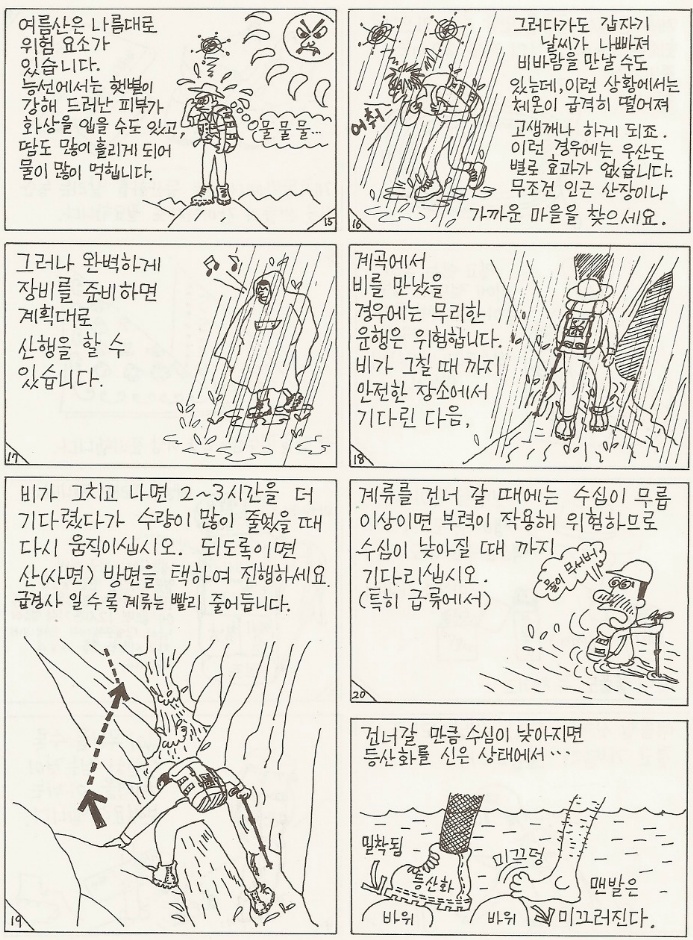 여름산은 나름대로
위험 요소가
있습니다.
능선에서는 햇볕이
강해 드러난 피부가
화상을 입을 수도 있고,
땀도 많이 흘리게 되어
물이 많이 먹힙니다.
물 물 물...
15
그러다가도 갑자기
날씨가 나빠져
비바람을 만날 수도
있는데, 이런 상황에서는
체온이 급격히 떨어져
고생깨나 하게 되죠.
이런 경우에는 우산도
별로 효과가 없습니다.
무조건 인근 산장이나
가까운 마을을 찾으세요.
어 추워
16
그러나 완벽하게
장비를 준비하면
계획대로
산행을 할 수
있습니다.
17
계곡에서
비를 만났을
경우에는 무리한
운행은 위험합니다.
비가 그칠 때 까지
안전한 장소에서
기다린 다음,
18
비가 그치고 나면 2~3시간을 더
기다렸다가 수량이 많이 줄었을 때
다시 움직이십시오. 되도록이면
산(사면) 방면을 택하여 진행하세요.
급경사 일 수록 계류는 빨리 줄어듭니다.
19
계류를 건너 갈 때에는 수심이 무릎
이상이면 부력이 작용해 위험하므로
수심이 낮아질 때 까지
기다리십시오.
(특히 급류에서)
물이 무서버
20
건너갈 만큼 수심이 낮아지면
등산화를 신은 상태에서···
밀착됨
등산화
미끄덩
맨발은
바위
바위
미끄러진다.